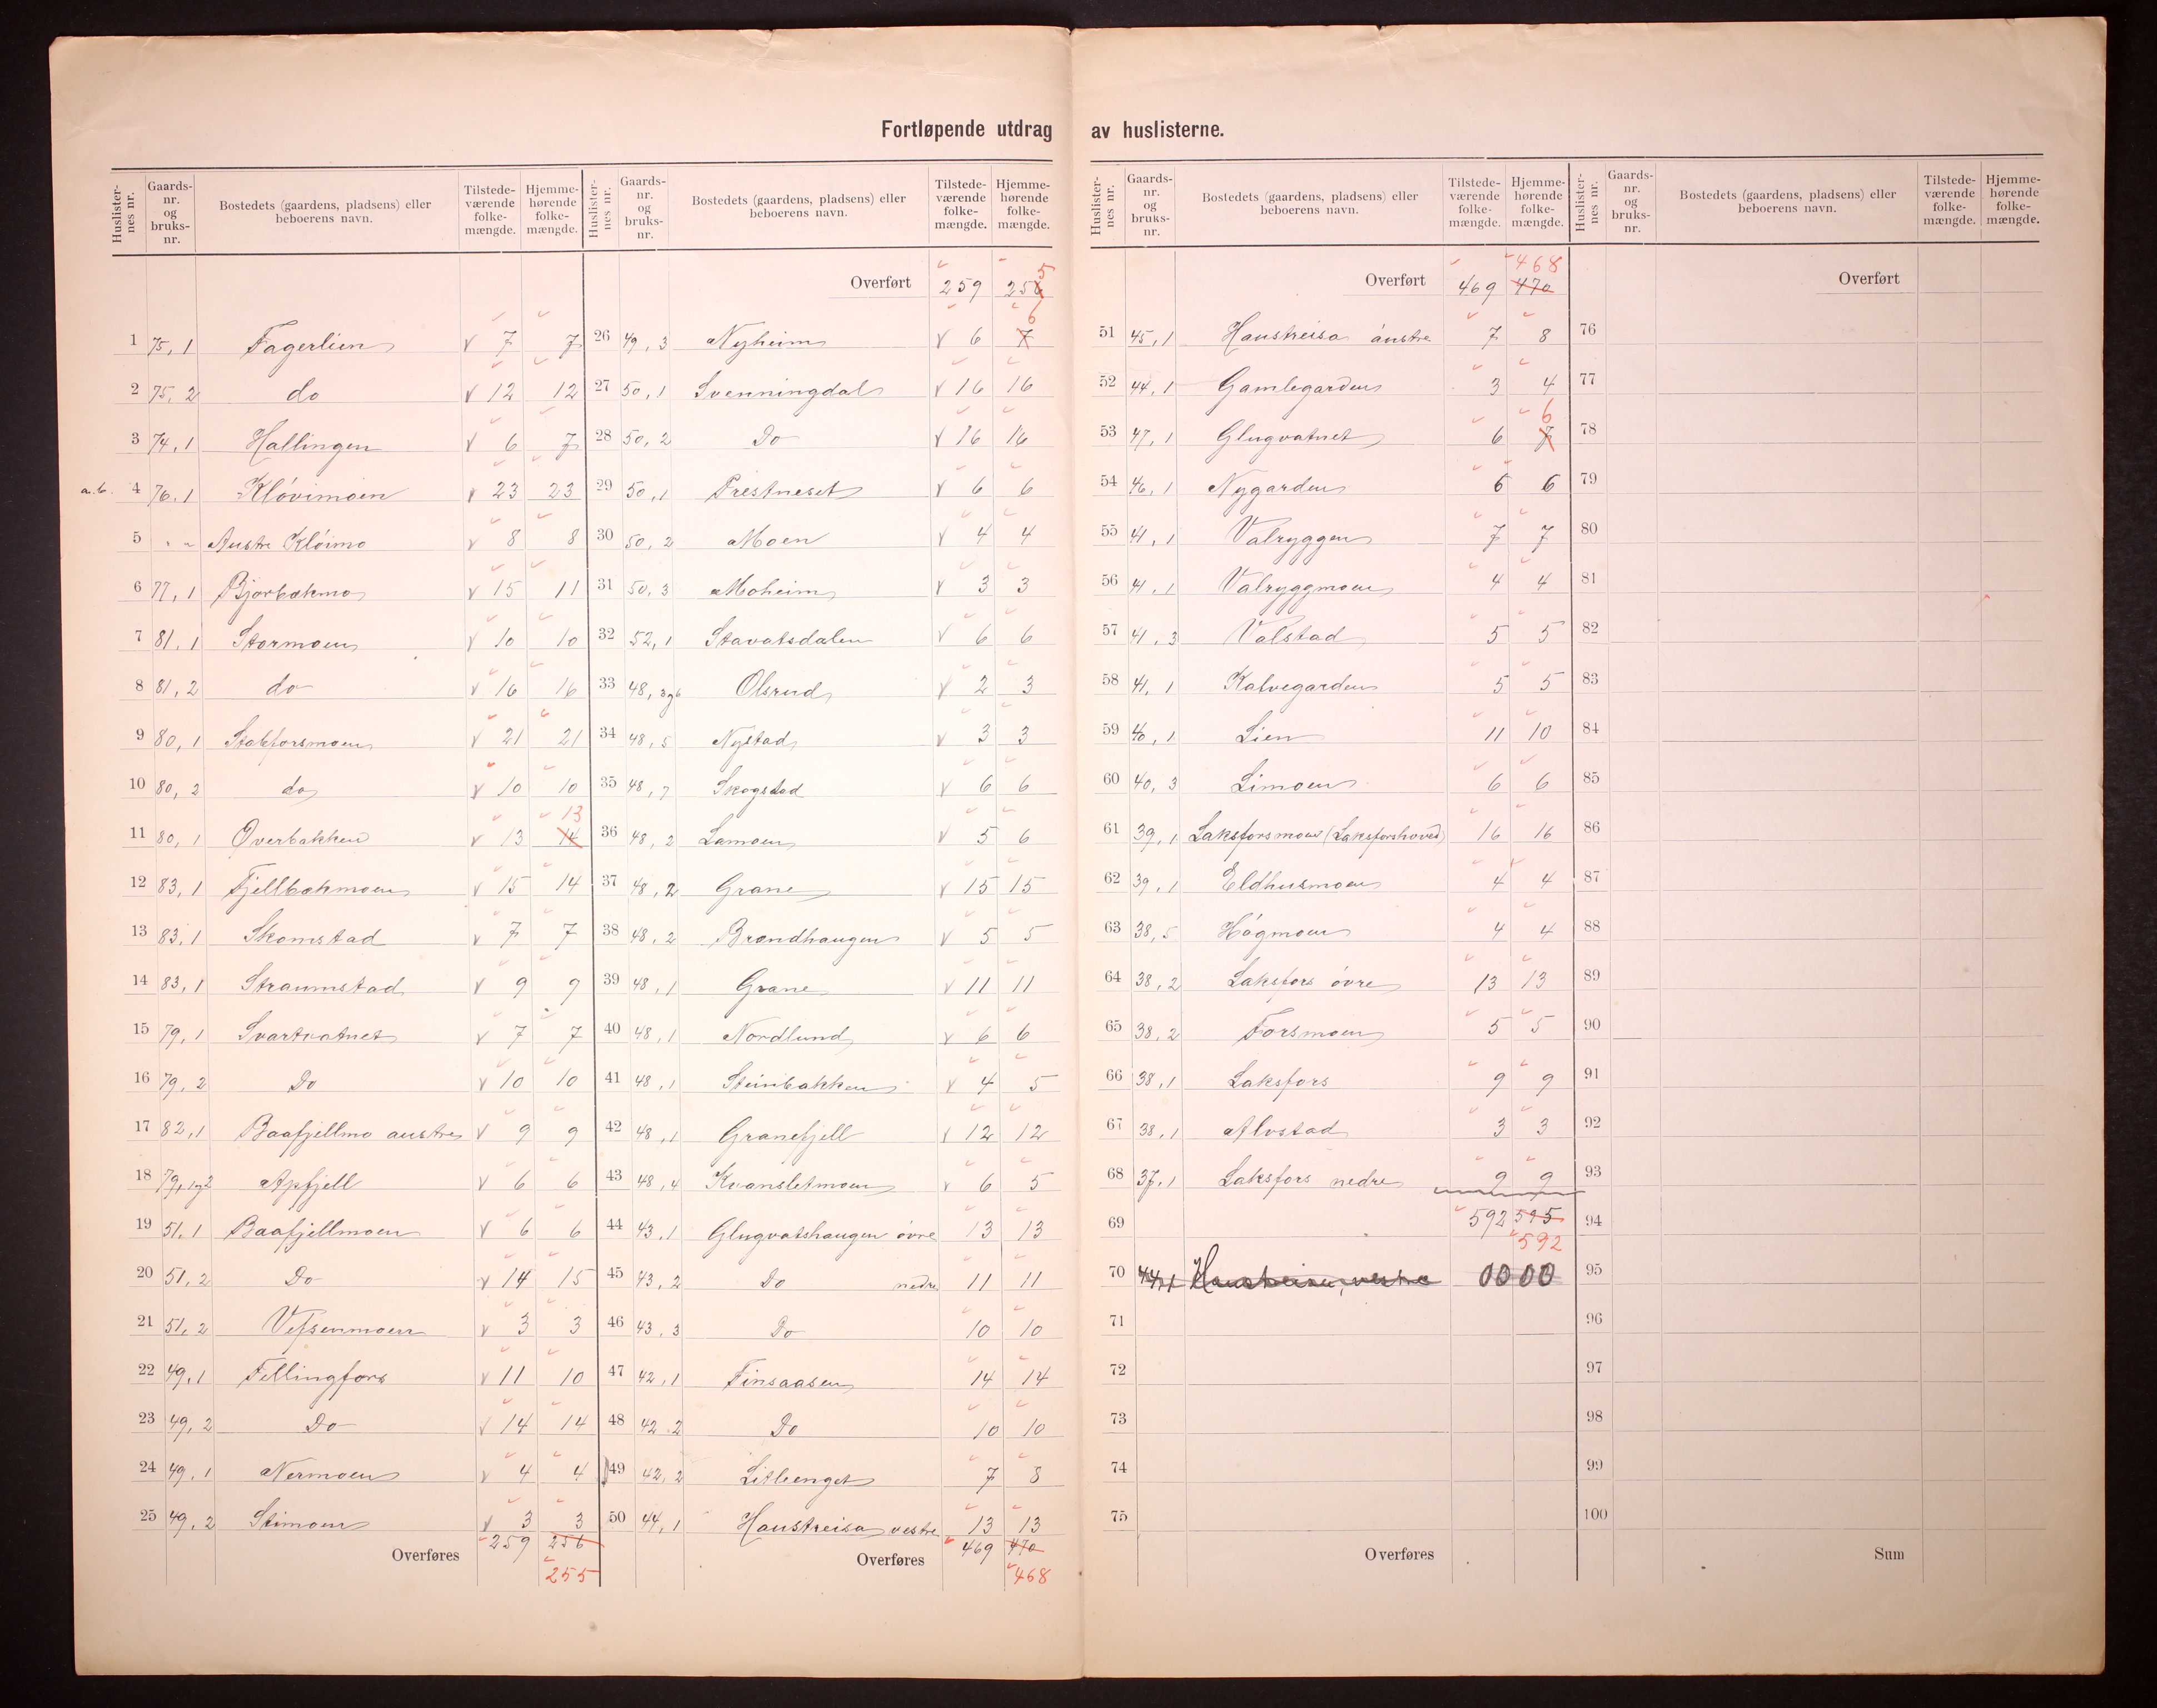 Fortløpende utdrag av huslisterne.
Huslisternes nr. Gaards-nr. og bruks-nr. Bostedets (gaardens, pladsens) eller beboerens navn. Tilstedeværende folkemængde. Hjemmehørende folkemængde.
1 75,1 Fagerlien v 7 7
2 75,2 do v 12 12
3 74,1 Hallingen v 6 7
a.b. 4 76,1 Kløvimoen v 23 23
5 " " Austre Kløimo v 8 8
6 77,1 Bjørbækmo v 15 11
7 81,1 Stormoen v 10 10
8 81,2 do v 16 16
9 80,1 Stakforsmoen v 21 21
10 80,2 do v 10 10
11 80,1 Øverbakken v 13 14 13
12 83,1 Fjellbækmoen v 15 14
13 83,1 Skomstad v 7 7
14 83,1 Straumstad v 9 9
15 79,1 Svartvatnet v 7 7
16 79,2 Do v 10 10
17 82,1 Baafjellmo austre v 9 9
18 79,1og2 Apfjell v 6 6
19 51,1 Baafjellmoen v 6 6
20 51,2 Do v 14 15
21 51,2 Vefsenmoen v 3 3
22 49,1 Fellingfors v 11 10
23 49,2 Do v 14 14
24 49,1 Nermoen v 4 4
25 49,2 Stimoen v 3 3
Overføres 259 256
255
Huslisternes nr. Gaards-nr. og bruks-nr. Bostedets (gaardens, pladsens) eller beboerens navn. Tilstedeværende folkemængde. Hjemmehørende folkemængde.
Overført 259 256 5
26 49,3 Nyheim v 6 7 6
27 50,1 Svenningdal v 16 16
28 50,2 Do v 16 16
29 50,1 Prestneset v 6 6
30 50,2 Moen v 4 4
31 50,3 Moheim v 3 3
32 52,1 Stavatsdalen v 6 6
33 48,3og6 Olsrud v 2 3
34 48,5 Nystad v 3 3
35 48,7 Skogstad v 6 6
36 48,2 Lamoen v 5 6
37 48,2 Grane v 15 15
38 48,2 Brandhaugen v 5 5
39 48,1 Grane v 11 11
40 48,1 Nordlund v 6 6
41 48,1 Steinbakken v 4 5
42 48,1 Granefjell v 12 12
43 48,4 Kvansletmoen v 6 5
44 43,1 Glugvatshaugen øvre 13 13
45 43,2 Do nedre 11 11
46 43,3 Do 10 10
47 42,1 Finsaasen 14 14
48 42,2 Do 10 10
49 42,2 Litleenget 7 8
50 44,1 Haustreisa vestre 13 13
Overføres 469 470
468
Huslisternes nr. Gaards-nr. og bruks-nr. Bostedets (gaardens, pladsens) eller beboerens navn. Tilstedeværende folkemængde. Hjemmehørende folkemængde.
468
Overført 469 470
51 45,1 Haustreisa austre 7 8
52 44,1 Gamlegarden 3 4
53 47,1 Glugvatnet 6 7 6
54 46,1 Nygarden 6 6
55 41,1 Valryggen 7 7
56 41,1 Valryggmoen 4 4
57 41,3 Valstad 5 5
58 41,1 Kalvegarden 5 5
59 40,1 Lien 11 10
60 40,3 Limoen 6 6
61 39,1 Laksforsmoen (Laksforshoved) 16 16
62 39,1 Eldhusmoen 4 4
63 38,5 Høgmoen 4 4
64 38,2 Laksfors øvre 13 13
65 38,2 Forsmoen 5 5
66 38,1 Laksfors 9 9
67 38,1 Alvstad 3 3
68 37,1 Laksfors nedre 9 9
69 592 595
592
70 44,1 Haustreisa, vestre 00 00
71
72
73
74
75
Overføres
Huslisternes nr. Gaards-nr. og bruks-nr. Bostedets (gaardens, pladsens) eller beboerens navn. Tilstedeværende folkemængde. Hjemmehørende folkemængde.
Overført
76
77
78
79
80
81
82
83
84
85
86
87
88
89
90
91
92
93
94
95
96
97
98
99
100
Sum